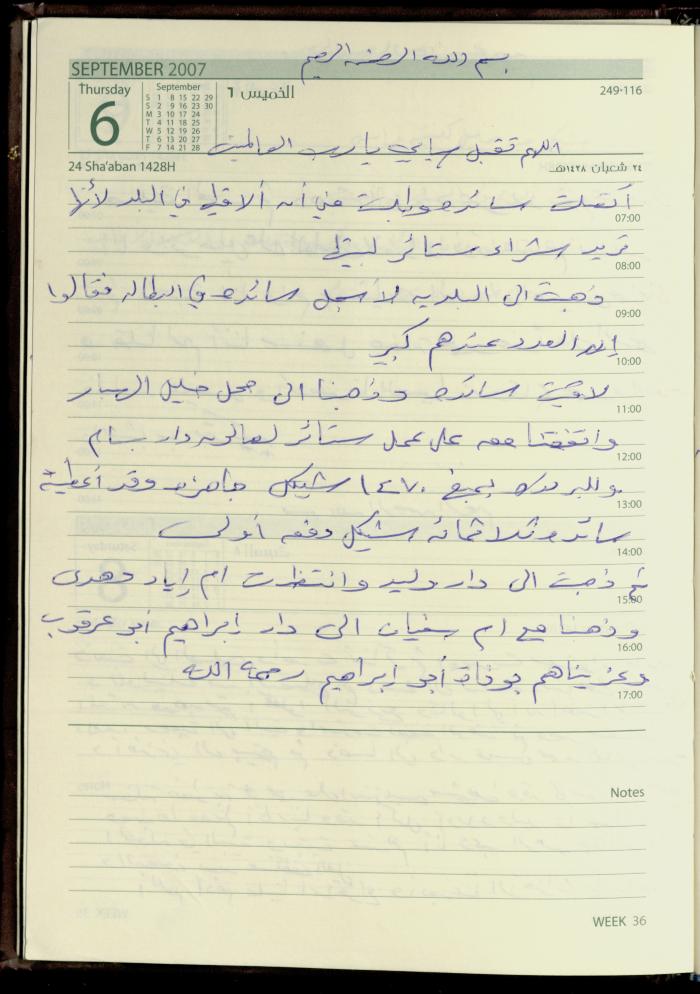 بسم الله الرحمن الرحيم
SEPTEMBER 2007
Thursday
September
الخميس ٦
249-116
6
S 1 8 15 22 29
S 2 9 16 23 30
M 3 10 17 24
T 4 11 18 25
W 5 12 19 26
T 6 13 20 27
F 7 14 21 28
اللهم تقبل يا رب العالمين
24 Sha'aban 1428H
٢٤ شعبان ١٤٢٨هـ
اتصلت سائده وطلبت مني أن ألاقيها في البلد لأنها
07:00
تريد شراء ستائر لبيتها
08:00
ذهبت الى البلديه لأسجل سائده في البطاله فقالوا
09:00
إن العدد عندهم كبير
10:00
لاقيت سائده وذهبنا الى محل خليل
11:00
واتفقنا معه على عمل ستائر لصالون دار بسام
12:00
بمبلغ ١٤٧٠ شيكل وقد أعطيت
13:00
سائده ثلاثمائه شيكل دفعه أولى
14:00
ثم ذهبت الى دار وليد وانتظرت ام إياد وهدى
15:00
وذهبنا مع ام سفيان الى دار إبراهيم أبو عرقوب
16:00
وعزيناهم بوفاة أبو إبراهيم رحمه الله
17:00
Notes
WEEK 36